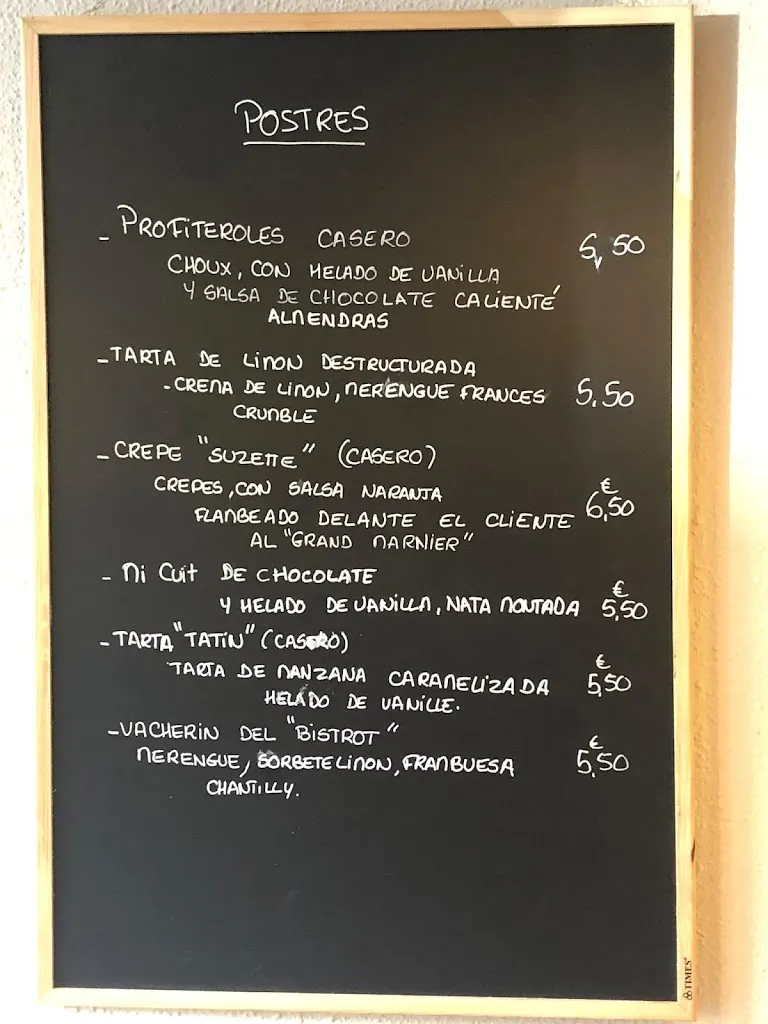 POSTRES
- PROFITEROLES CASERO 5,50
CHOUX, CON HELADO DE VANILLA
Y SALSA DE CHOCOLATE CALIENTÉ
ALMENDRAS
- TARTA DE LIMON DESTRUCTURADA
- CREMA DE LIMON, MERENGUE FRANCES 5,50
CRUMBLE
- CREPE "SUZETTE" (CASERO)
CREPES, CON SALSA NARANJA € 6,50
FLAMBEADO DELANTE EL CLIENTE
AL "GRAND MARNIER"
- Mi CUIT DE CHOCOLATE
Y HELADO DE VANILLA, NATA MONTADA € 5,50
- TARTA "TATIN" (CASERO)
TARTA DE MANZANA CARAMELIZADA € 5,50
HELADO DE VANILLE.
- VACHERIN DEL "BISTROT"
MERENGUE, SORBETE LIMON, FRAMBUESA € 5,50
CHANTILLY.
TIMES